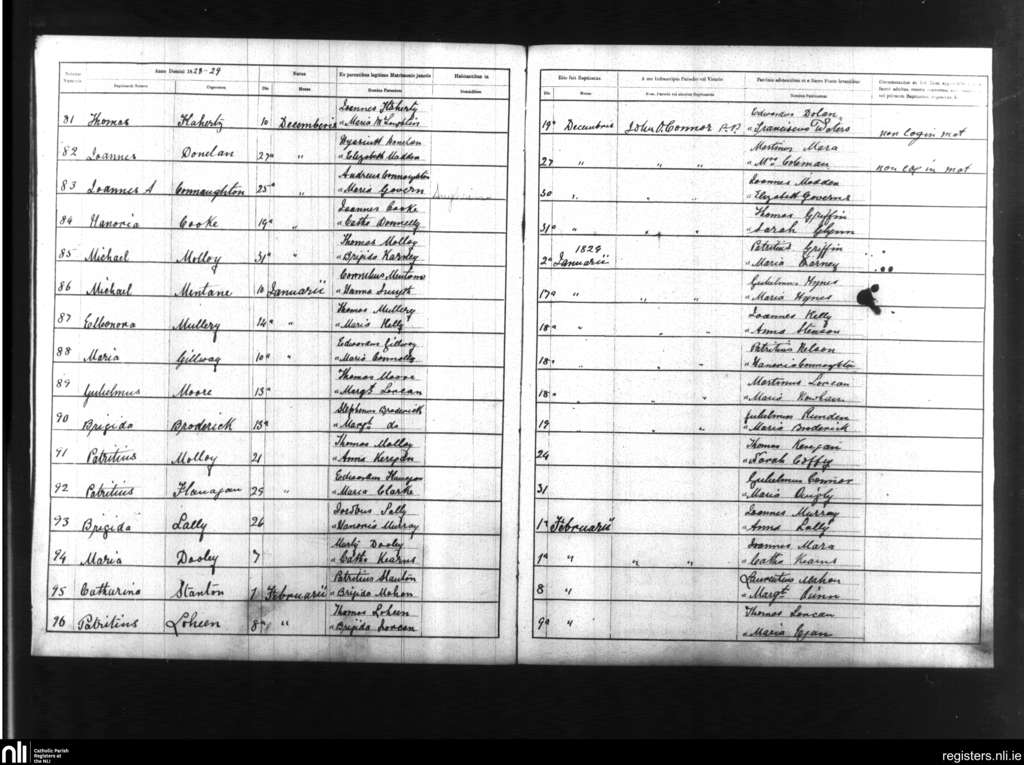 Anno Domini 1828-29
Natus
Ex parentibus legitimo Matrimonio junctis
Habitantibus in
Cognomen
Die
Mense
Nomina Parentum
81 Thomas Flaherty 10 Decembris Joannes Flaherty
" Maria McLoughlin
82 Joannes Donelan 27a " Hyacinth Donelan
" Elizabeth Madden
83 Joannes A Connaughton 25a " Andreas Connaughton
" Maria Govern
84 Hanoria Cooke 19a " Joannes Cooke
" Catha Donnelly
85 Michael Molloy 31a " Thomas Molloy
" Brigida Karney
86 Michael Mintane 10 Januarii Cornelius Mintane
" Hanna Smyth
87 Elleonora Mullery 14a " Thomas Mullery
" Maria Kelly
88 Maria Gillway 10a " Edwardus Gillway
" Maria Connolly
89 Gulielmus Moore 13a Thomas Moore
" Margt Lorcan
90 Brigida Broderick 13a Stephanus Broderick
" Margt do
91 Patritius Molloy 21 Thomas Molloy
" Anna Keregan
92 Patritius Flanagan 29 " Edwardus Flanagan
" Maria Clarke
93 Brigida Lally 26 Lally
" Hanoria Murray
94 Maria Dooley 7 Marty Dooley
" Catha Kearns
95 Catharina Stanton 7 Februarii Patritius Stanton
" Brigida Mohon
96 Patritius Loheen 8a " Thomas Loheen
" Brigida Lorcan
Die
Mense
19a Decembris John O'Connor P.P. Edwardus Dolan
" Franciscus Waters
27 " " " Martinus Mara
" Mrs Coleman
30 " " " Joannes Madden
" Elizabeth Governs
31a " " " Thomas Griffin
" Sarah Glynn
1829
2a Januarii Patritius Griffin
" Maria Carney
17a " " " Gulielmus Hynes
" Maria Hynes
18a " " " Joannes Kelly
" Anna
18a " " " Patritius Nelson
" Hanoria Connaughton
18a " " " Martinus Lorcan
" Maria
19 " " " Gulielmus
" Maria Broderick
24 Thomas Keregan
" Norah Coffy
31 Gulielmus Connor
" Maria
1a Februarii Joannes Murray
" Anna Lally
1a " " " Joannes Mara
" Catha Kearns
8 " Laurentius Mahon
" Margt
9a " Thomas Lorcan
" Maria Egan
nli
Catholic Parish
Registers at
the NLI
registers.nli.ie